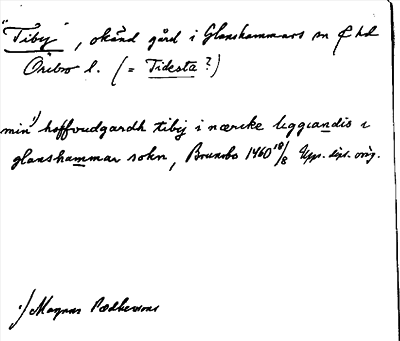 "Tiby", okänd gård i Glanshammars sn o hd
Örebro l. (= Tidesta?)
min¹⁾ hoffvudgardh tibij i nærike liggiandis i
glanshammar sokn, Brunsbo 1460 18/8 Upps. dipl. orig.
¹⁾ Magnus